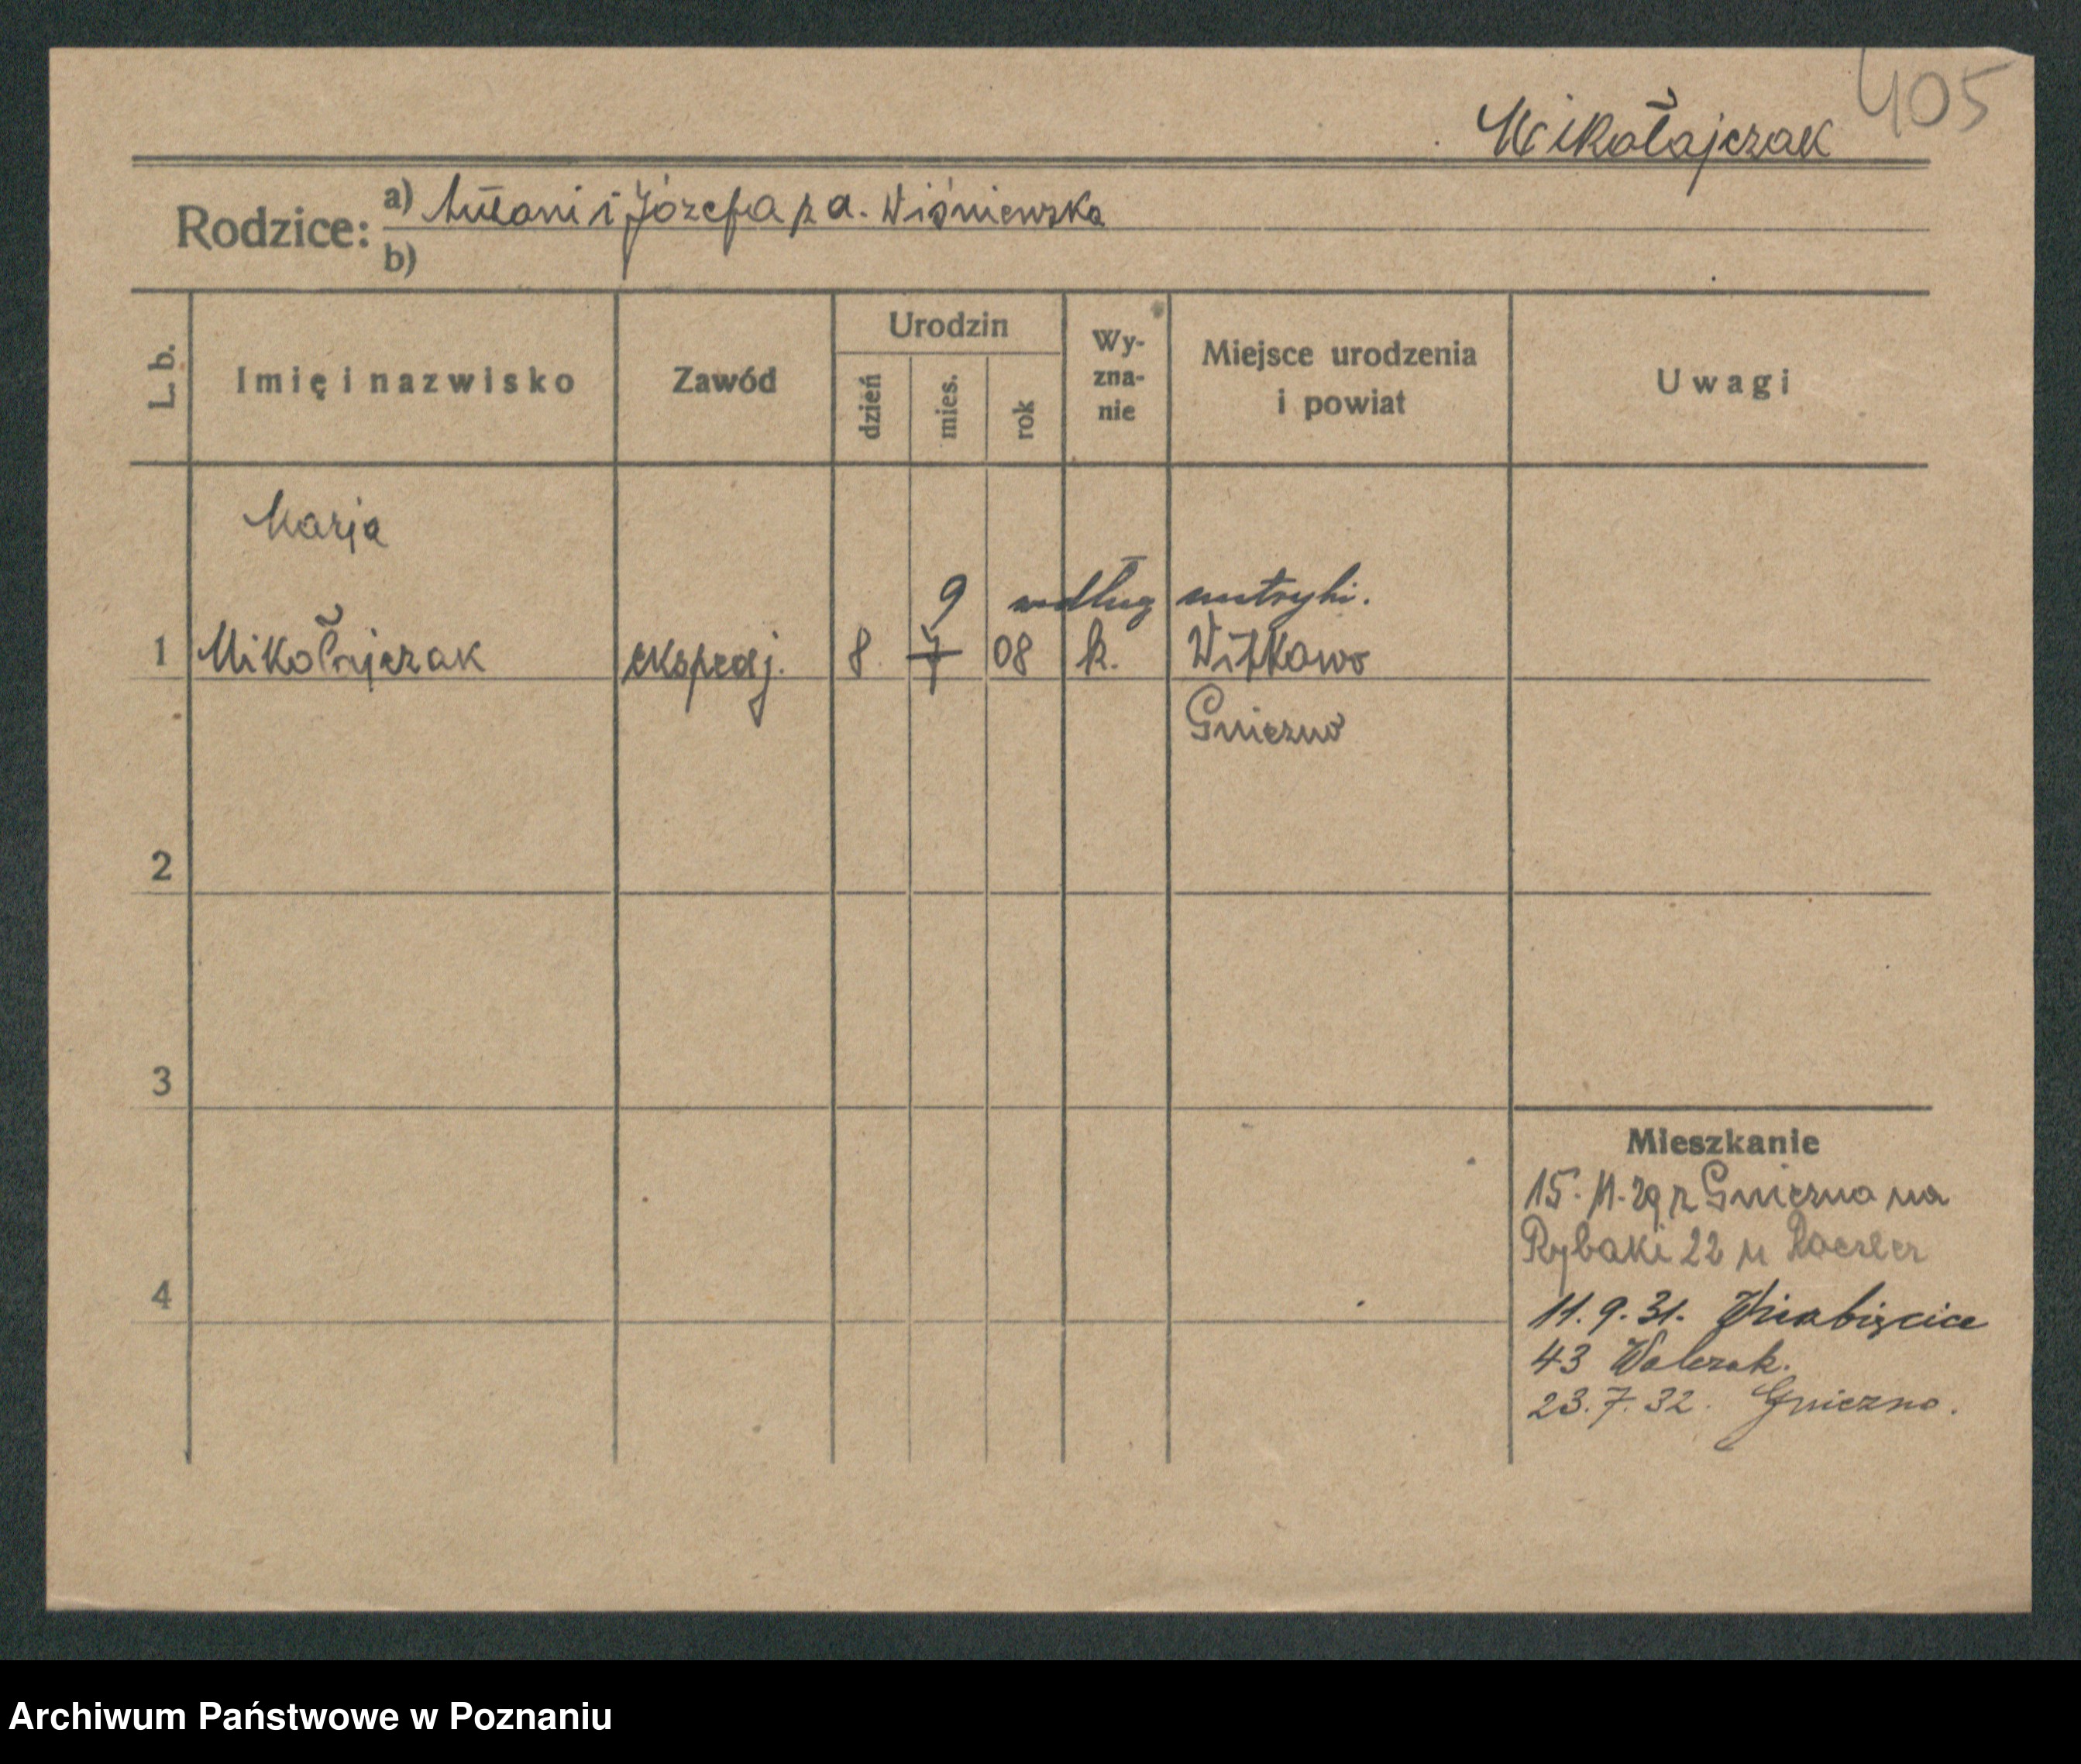 405
Mikołajczak
Rodzice: a) Antoni i Józefa z d. Wiśniewska
b)
L. b. Imię i nazwisko Zawód Urodzin dzień mies. rok Wy-zna-nie Miejsce urodzenia i powiat Uwagi
Marja
9 według metryki.
1 Mikołajczak ekspedj. 8 7 08 k. Witkowo
Gniezno
2
3
4
Mieszkanie
15. 11. 29 z Gniezna na
Rybaki 22 u
11. 9. 31.
43 Walczak.
23. 7. 32. Gniezno.
Archiwum Państwowe w Poznaniu